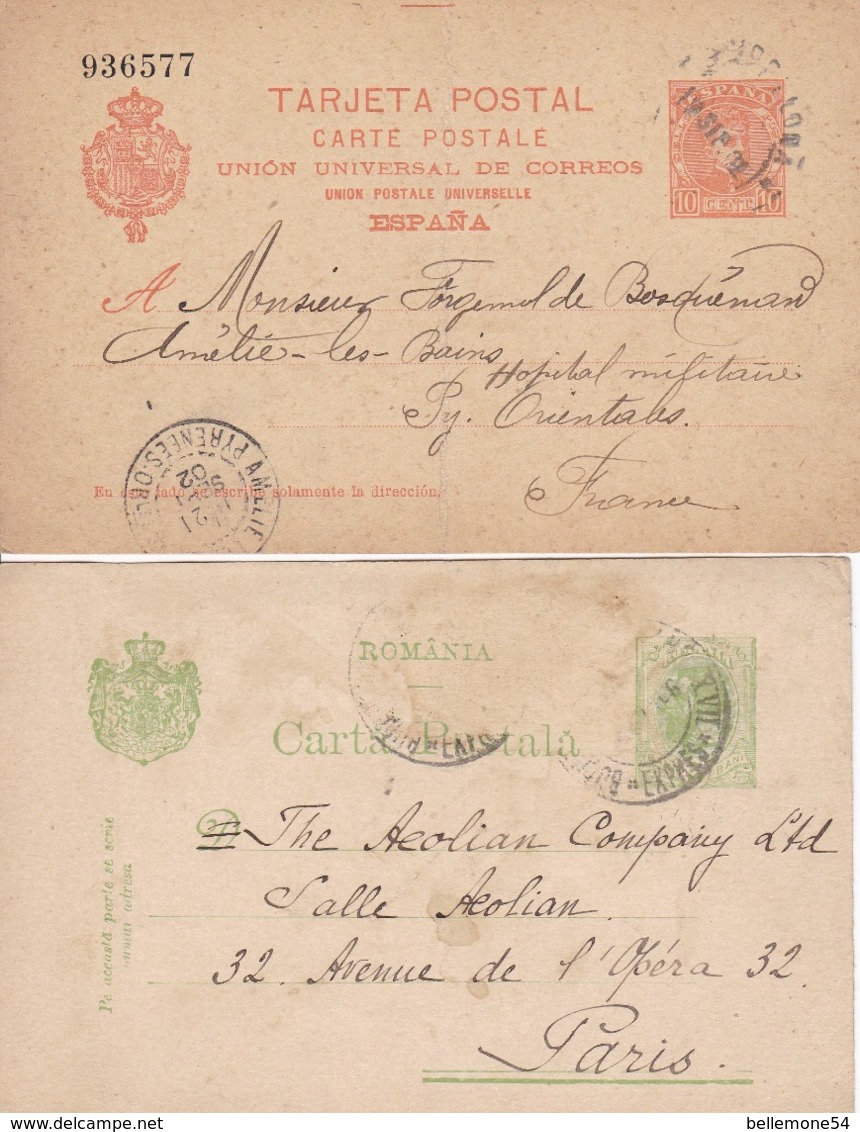 936577
TARJETA POSTAL
CARTE POSTALE
UNIÓN UNIVERSAL DE CORREOS
UNION POSTALE UNIVERSELLE
ESPAÑA
ESPAÑA
10 CENT. 10
A Monsieur Forgemol de Bosquénard
Amélie-les-Bains
Hopital militaire
Py. Orientales.
France
AMELIE
PYRENEES-ORLES
02
En este lado se escribe solamente la dirección.
ROMÂNIA
Carta Postală
BANI
XVII
EXPRES
The Aeolian Company Ltd
Salle Aeolian.
32. Avenue de l'Opéra 32.
Paris.
Pe această parte se scrie
numai adresa
bellemone54